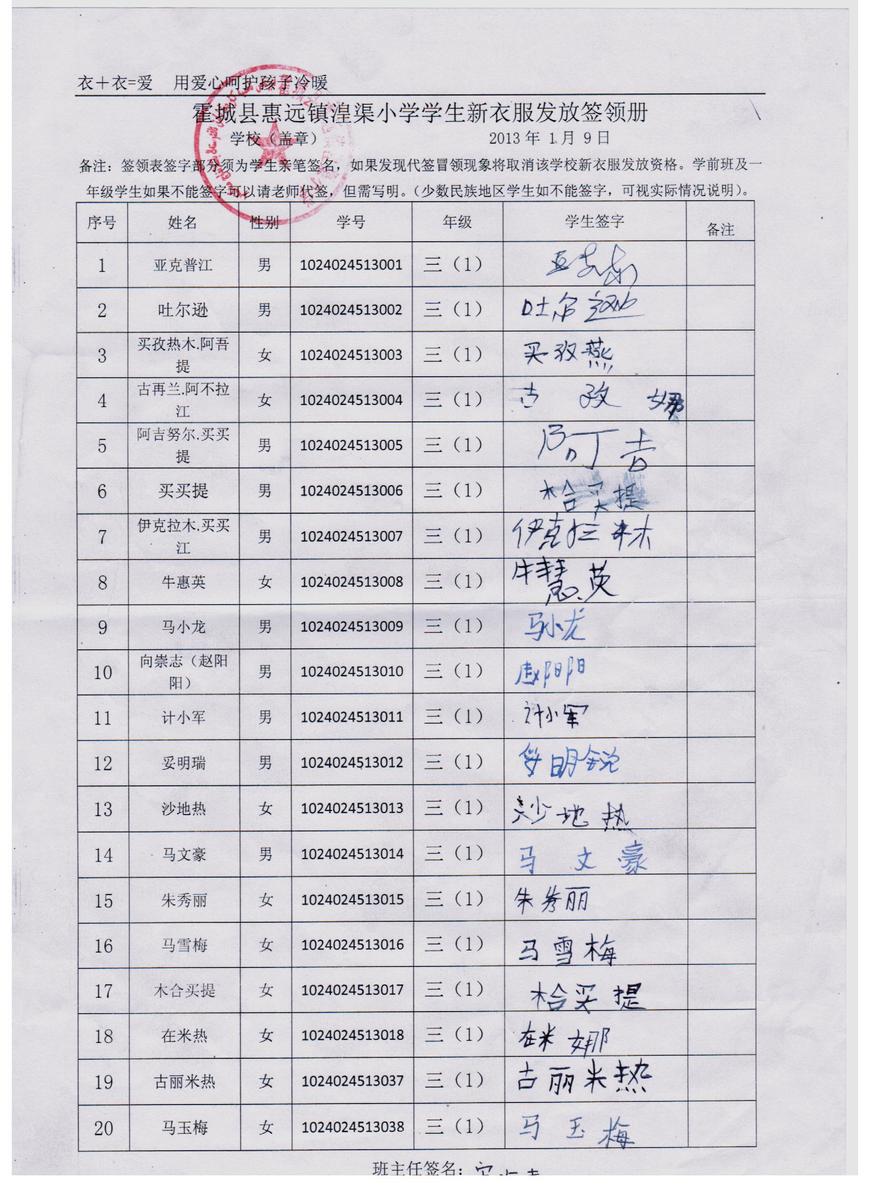 衣＋衣=爱　用爱心呵护孩子冷暖
霍城县惠远镇湟渠小学学生新衣服发放签领册
学校（盖章） 2013 年 1 月 9 日
备注：签领表签字部分须为学生亲笔签名，如果发现代签冒领现象将取消该学校新衣服发放资格。学前班及一
年级学生如果不能签字可以请老师代签，但需写明。（少数民族地区学生如不能签字，可视实际情况说明）。
序号 姓名 性别 学号 年级 学生签字 备注
1 亚克普江 男 1024024513001 三（1）
2 吐尔逊 男 1024024513002 三（1） 吐尔逊
3 买孜热木.阿吾提 女 1024024513003 三（1） 买孜燕
4 古再兰.阿不拉江 女 1024024513004 三（1） 古 孜 娜
5 阿吉努尔.买买提 男 1024024513005 三（1） 阿丁吉
6 买买提 男 1024024513006 三（1） 木合买提
7 伊克拉木.买买江 男 1024024513007 三（1） 伊克拉木
8 牛惠英 女 1024024513008 三（1） 牛慧英
9 马小龙 男 1024024513009 三（1） 马小龙
10 向崇志（赵阳阳） 男 1024024513010 三（1） 赵阳阳
11 计小军 男 1024024513011 三（1） 计小军
12 妥明瑞 男 1024024513012 三（1） 妥明锐
13 沙地热 女 1024024513013 三（1） 沙地热
14 马文豪 男 1024024513014 三（1） 马文豪
15 朱秀丽 女 1024024513015 三（1） 朱秀丽
16 马雪梅 女 1024024513016 三（1） 马雪梅
17 木合买提 女 1024024513017 三（1） 木合买提
18 在米热 女 1024024513018 三（1） 在米娜
19 古丽米热 女 1024024513037 三（1） 古丽米热
20 马玉梅 女 1024024513038 三（1） 马玉梅
班主任签名：